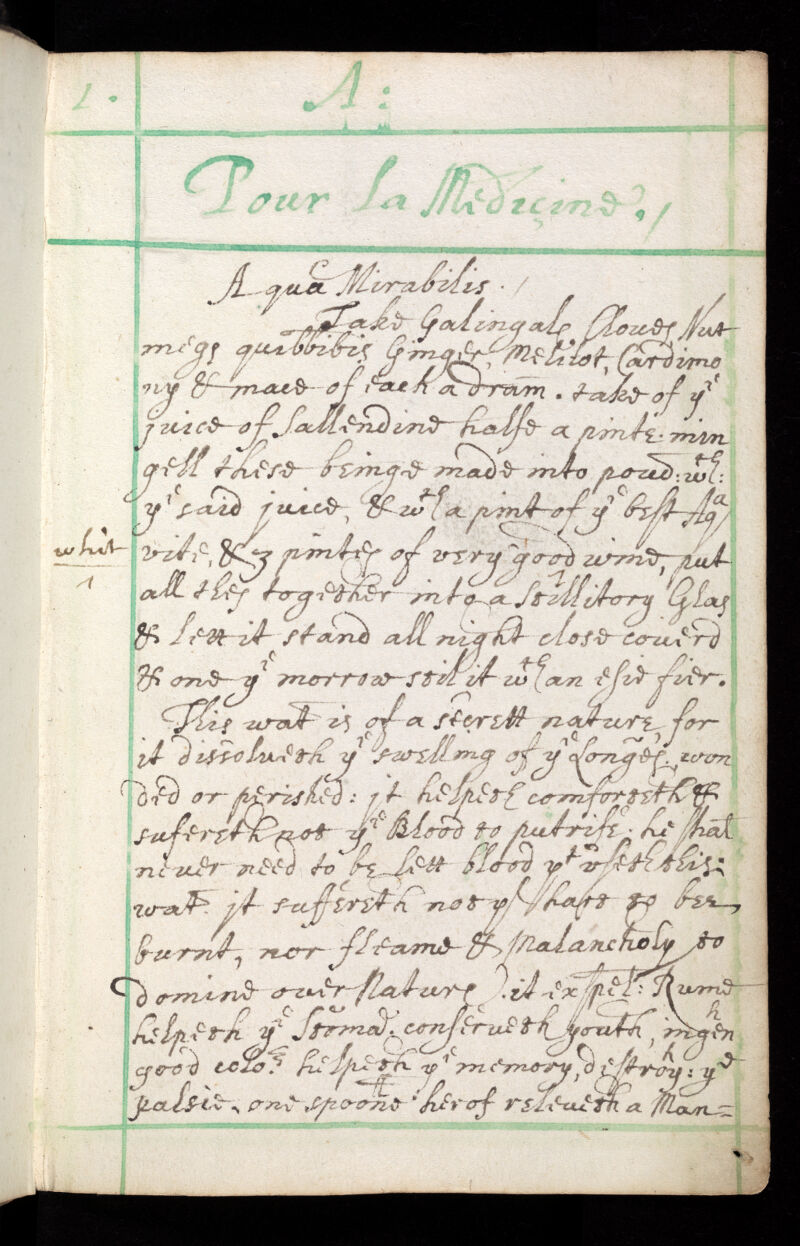 1. A:
Pour La Medicine./
Aqua Mirabilis./
Take Galingale Cloues Nut
megs quibbibis Ginger, Melilot, Cardimo
ny & mace of each a dram. take of yᵉ
juice of Sallendine halfe a pinte. min
gell these beinge made into powd: wᵗʰ:
yᵉ said juice, & wᵗʰ a pint of yᵉ best Aqᵃ
whit vite, & 3 pintes of very good wine, put
1
all thes together into a Stillitory Glas
& lett it stand all night close couerd
& one yᵉ morrow stil it wᵗʰ an esie fier.
This wat is of a secrett nature, for
it dissolueth yᵉ swelling of yᵉ Longes, won
ded or perished: it helpeth comforteth &
sufereth not yᵉ Blood to putrife: he shal
never need to be lett blood yᵗ vseth this:
wat. it suffereth not yᵉ hart to bee
burnt, nor fleame & Malancholy to
domine over Nature). it expel: Rume
helpeth yᵉ Stoma. conserveth youth, ingenʰ
good colo: helpeth yᵉ memory, destroyʰ: yᵉ
palsie. one spoone herof releueth a Man=